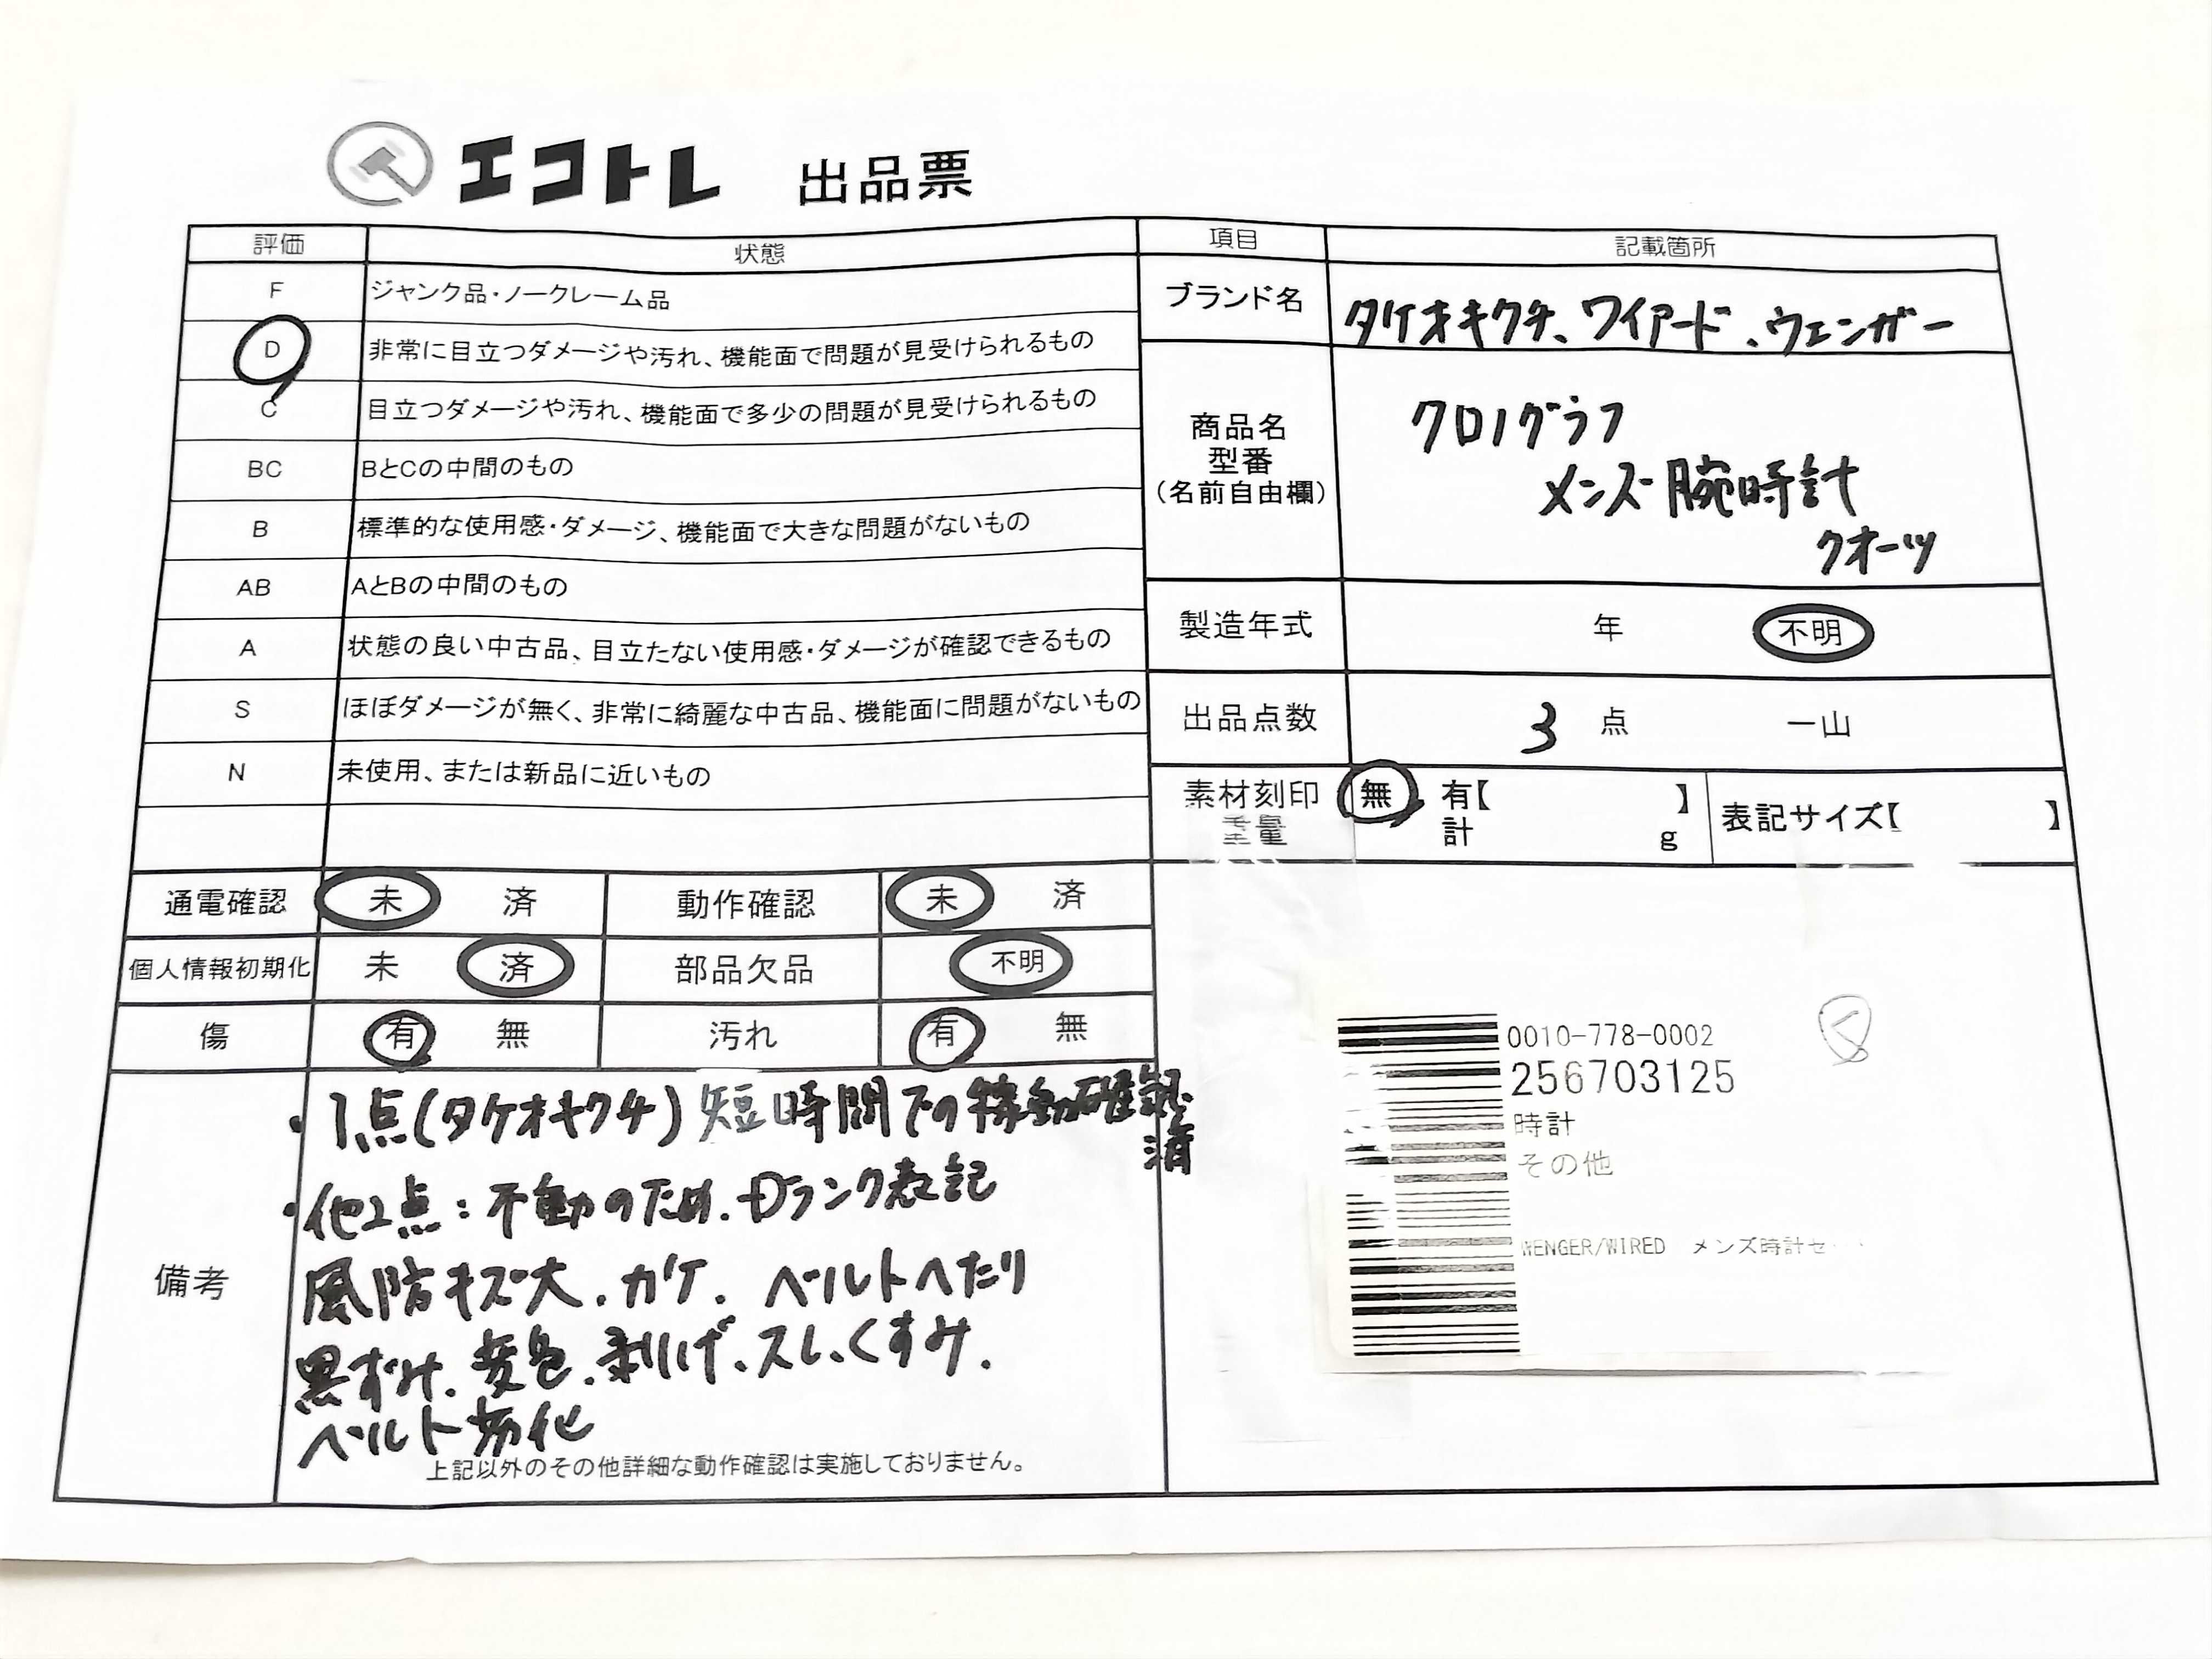 エコトレ 出品票
評価 状態 項目 記載箇所
F ジャンク品・ノークレーム品
D 非常に目立つダメージや汚れ、機能面で問題が見受けられるもの
C 目立つダメージや汚れ、機能面で多少の問題が見受けられるもの
BC BとCの中間のもの
B 標準的な使用感・ダメージ、機能面で大きな問題がないもの
AB AとBの中間のもの
A 状態の良い中古品、目立たない使用感・ダメージが確認できるもの
S ほぼダメージが無く、非常に綺麗な中古品、機能面に問題がないもの
N 未使用、または新品に近いもの
ブランド名 タケオキクチ、ワイアード、ウェンガー
商品名
型番
(名前自由欄)
クロノグラフ
メンズ腕時計
クオーツ
製造年式 年 不明
出品点数 3 点 一山
素材刻印 無 有【 】 表記サイズ【 】
重量 計 g
通電確認 未 済 動作確認 未 済
個人情報初期化 未 済 部品欠品 不明
傷 有 無 汚れ 有 無
備考
・1点(タケオキクチ)短時間での稼動確認済
・他2点:不動のため、Dランク表記
風防キズ大、カケ、ベルトヘたり
黒ずみ、変色、剥げ、スレ、くすみ、
ベルト劣化
上記以外のその他詳細な動作確認は実施しておりません。
0010-778-0002
256703125
時計
その他
WENGER/WIRED メンズ時計セ